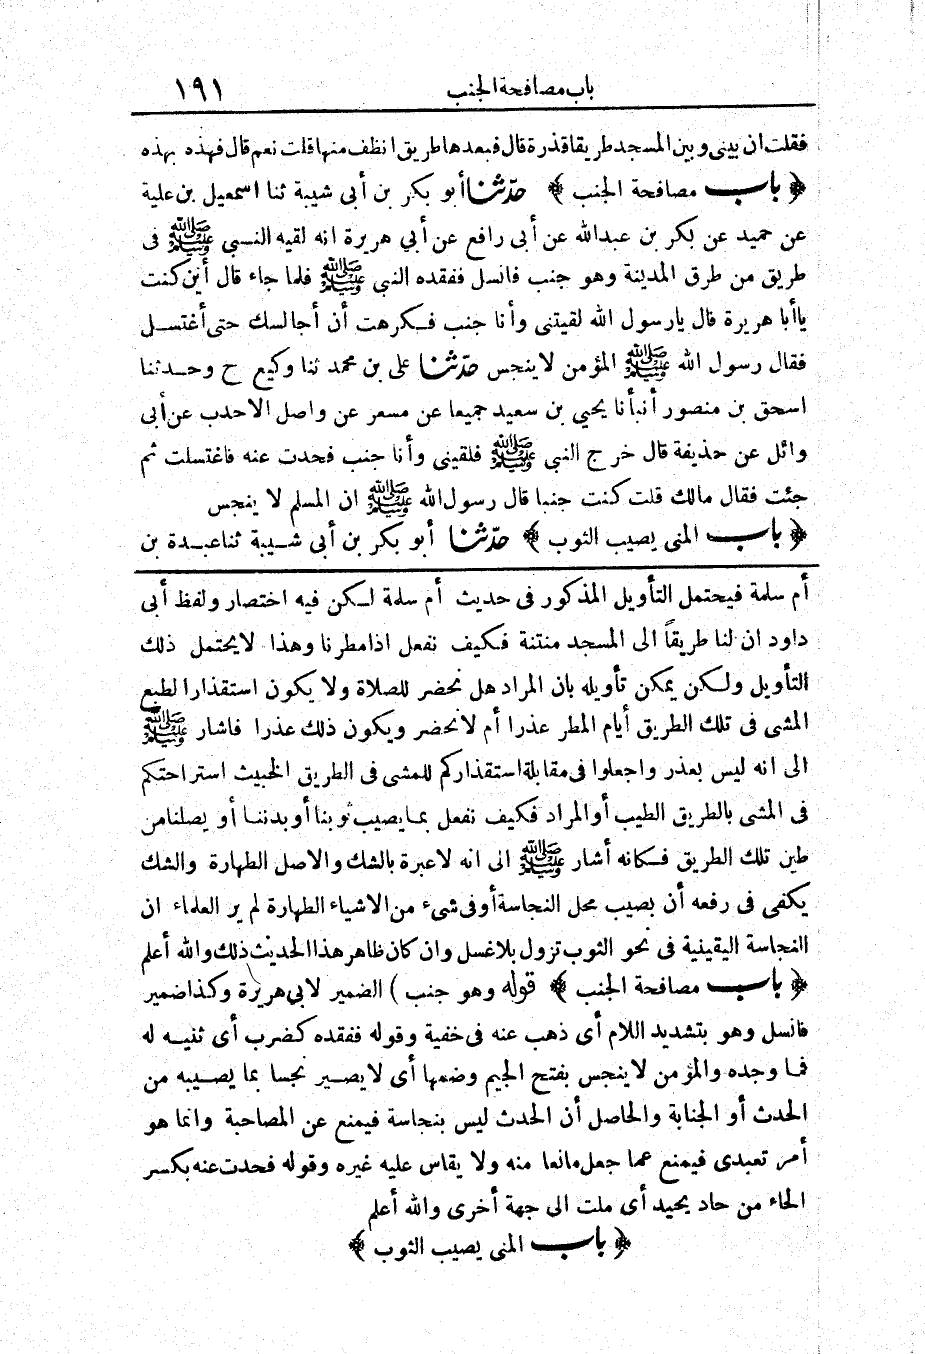 باب مصافحة الجنب ١٩١
فقلت ان بينى وبين المسجد طريقا قذرة قال فبعدها طريق انظف منها قلت نعم قال فهذه بهذه
﴿ باب مصافحة الجنب ﴾ حدّثنا أبو بكر بن أبى شيبة ثنا اسمعيل بن علية
عن حميد عن بكر بن عبدالله عن أبى رافع عن أبي هريرة انه لقيه النبى ﷺ فى
طريق من طرق المدينة وهو جنب فانسل ففقده النبى ﷺ فلما جاء قال أين كنت
ياأبا هريرة قال يارسول الله لقيتنى وأنا جنب فكرهت أن أجالسك حتى أغتسل
فقال رسول الله ﷺ المؤمن لاينجس حدّثنا على بن محمد ثنا وكيع ح وحدثنا
اسحق بن منصور أنبأنا يحيى بن سعيد جميعا عن مسعر عن واصل الاحدب عن أبى
وائل عن حذيفة قال خرج النبى ﷺ فلقينى وأنا جنب فحدت عنه فاغتسلت ثم
جئت فقال مالك قلت كنت جنبا قال رسول الله ﷺ ان المسلم لا ينجس
﴿ باب المنى يصيب الثوب ﴾ حدّثنا أبو بكر بن أبى شيبة ثنا عبدة بن
أم سلمة فيحتمل التأويل المذكور فى حديث أم سلمة لكن فيه اختصار ولفظ أبى
داود ان لنا طريقاً الى المسجد منتنة فكيف نفعل اذا مطرنا وهذا لايحتمل ذلك
التأويل ولكن يمكن تأويله بان المراد هل نحضر للصلاة ولا يكون استقذارا لطبع
المشى فى تلك الطريق أيام المطر عذرا أم لانحضر ويكون ذلك عذرا فاشار ﷺ
الى انه ليس بعذر واجعلوا فى مقابلة استقذاركم للمشى فى الطريق الخبيث استراحتكم
فى المشى بالطريق الطيب أو المراد فكيف نفعل بمايصيب ثوبنا أو بدننا أو يصلنا من
طين تلك الطريق فكانه أشار ﷺ الى انه لاعبرة بالشك والاصل الطهارة والشك
يكفى فى رفعه أن يصيب محل النجاسة أو فى شىء من الاشياء الطهارة لم ير العلماء ان
النجاسة اليقينية فى نحو الثوب تزول بلا غسل وان كان ظاهر هذا الحديث ذلك والله أعلم
﴿ باب مصافحة الجنب ﴾ قوله وهو جنب ) الضمير لابى هريرة وكذا ضمير
فانسل وهو بتشديد اللام أى ذهب عنه فى خفية وقوله ففقده كضرب أى تنبه له
فما وجده والمؤمن لاينجس بفتح الجيم وضمها أى لايصير نجسا بما يصيبه من
الحدث أو الجنابة والحاصل أن الحدث ليس بنجاسة فيمنع عن المصاحبة وانما هو
أمر تعبدى فيمنع عما جعل مانعا منه ولا يقاس عليه غيره وقوله فحدت عنه بكسر
الحاء من حاد يحيد أى ملت الى جهة أخرى والله أعلم
﴿ باب المنى يصيب الثوب ﴾